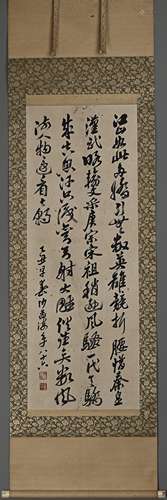 江山如此多嬌引無數英雄競折腰惜秦皇
漢武略輸文采唐宗宋祖稍遜風騷一代天驕
成吉思汗只識彎弓射大雕俱往矣數風
流人物還看今朝
沙孟海年八十六